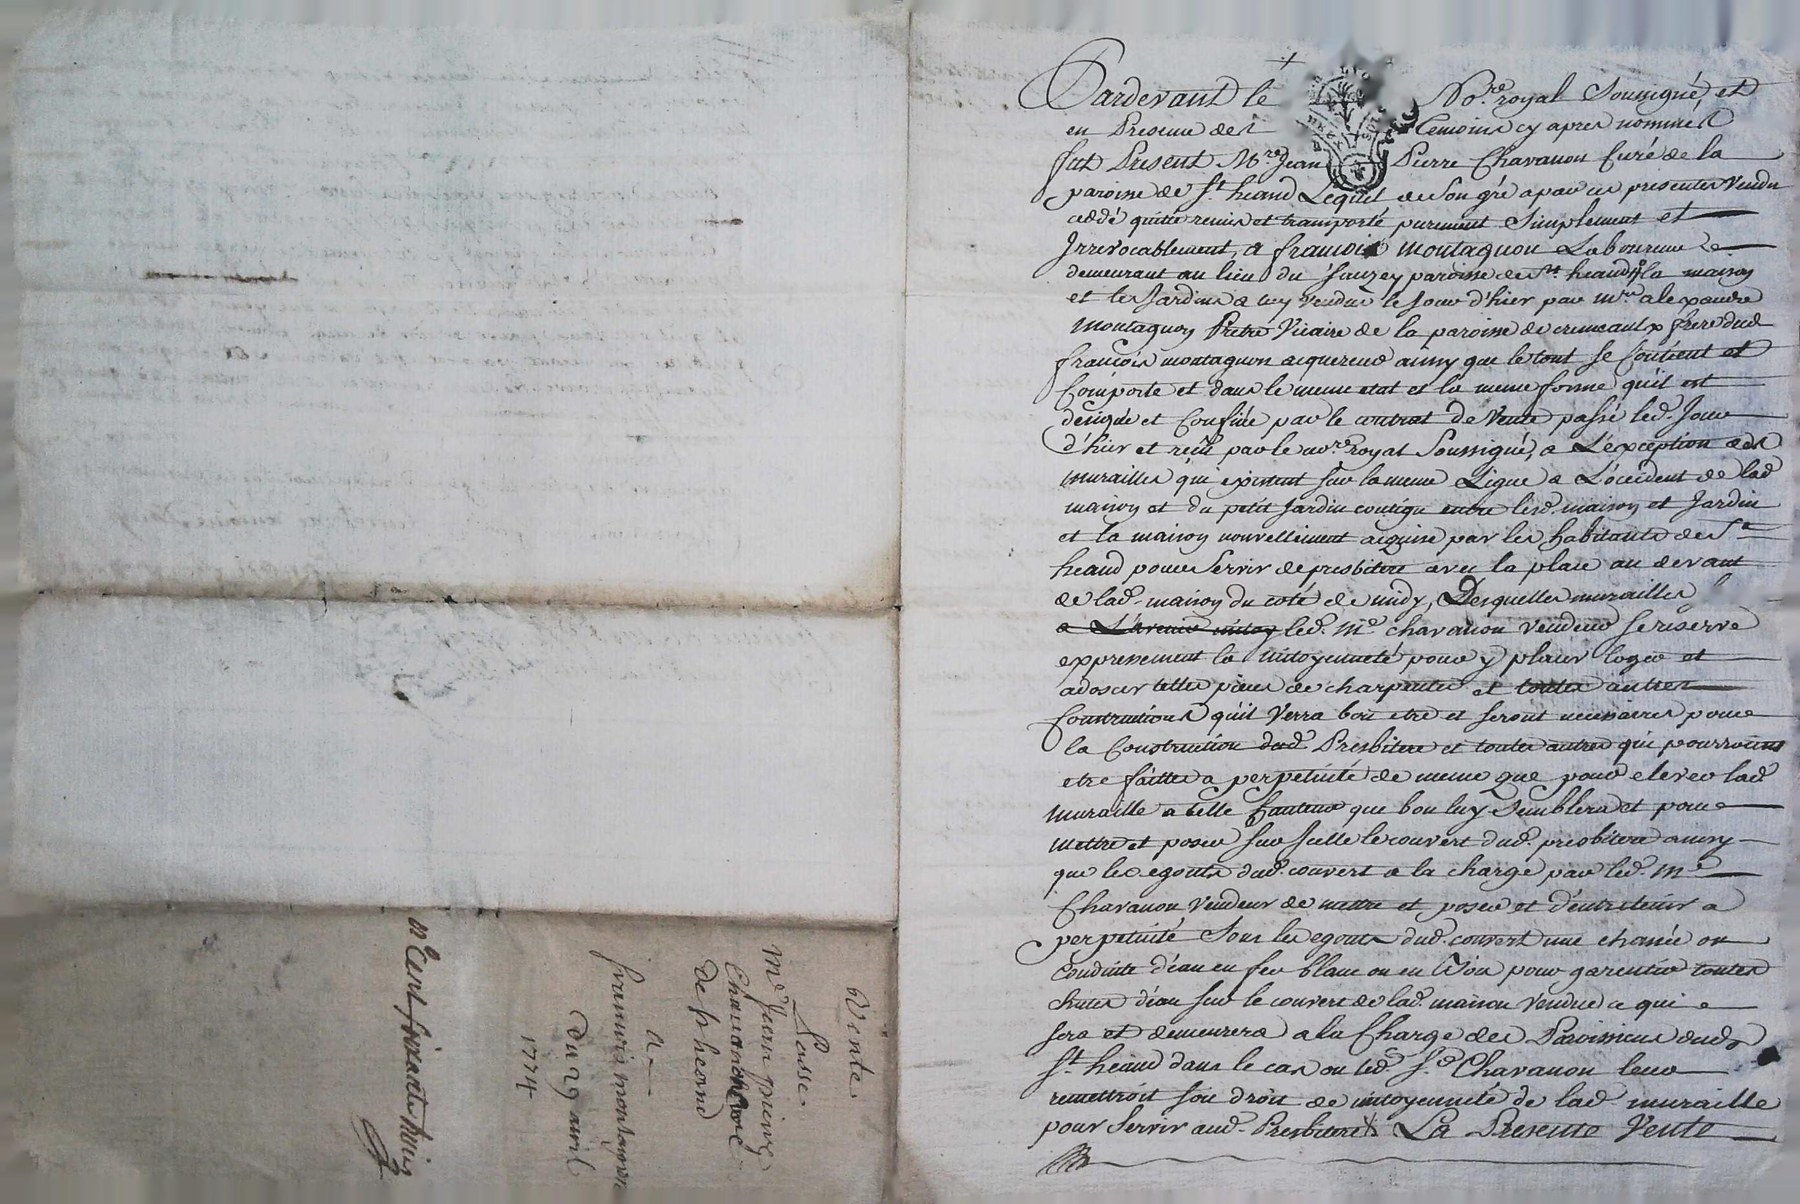 Pardevant le No.re royal Soussigné, et
en Presence des temoins cy apres nommés
fut Present Mre Jean Pierre Chavanon Curé de la
paroisse de St. héand Lequel de Son gré a par ces presentes Vendu
cedé quitté remis et transporté purement Simplement et
Irrevocablement, a françois montagnon Laboureur
demeurant au lieu du Sauzey paroisse de St. heand la maison
et les Jardins a luy Vendus le Jour d'hier par mre alexandre
montagnon Prêtre Vicaire de la paroisse de cremeaulx frere dud.
françois montagnon acquereur ainsy que le tout Se Contient et
Comporte et dans le meme etat et la meme forme qu'il est
désigné et Confiné par le contrat de Vente passé led. Jour
d'hier et reçu par le no.re royal Soussigné, a L'exception des
murailles qui existent sur la meme Ligne a L'occident de lad.
maison et du petit Jardin contigu entre lesd. maison et Jardin
et la maison nouvellement acquise par les habitants de St.
heand pour Servir de presbitere avec la place au devant
de lad. maison du coté de midy, Desquelles murailles
led. Me chavanon vendeur se réserve
expressement la mitoyenneté pour y placer loger et
adosser telles pieces de charpentes et toutes autres
Constructions qu'il Verra bon etre et seront necessaires pour
la Construction dud. Presbitere et toutes autres qui pourront
etre faittes a perpetuité de meme que pour elever lad.
muraille a telle hauteur que bon luy Semblera et pour
mettre et poser sur Icelle le couvert dud. presbitere ainsy
que les egouts dud. couvert a la charge par led. Me
Chavanon Vendeur de mettre et poser et d'entretenir a
perpetuité Sous les egouts dud. couvert une chanée ou
Conduite d'eau en fer blanc ou en bois pour garentir toutes
chutes d'eau sur le couvert de lad. maison Vendue ce qui
sera et demeurera a la Charge des Paroissiens dud.
St. heand dans le cas ou led. Sr. Chavanon leur
remettroit son droit de mitoyenneté de lad. muraille
pour Servir aud. Presbitere La Presente Vente
Vente
Passée
Me Jean pierre
Chavanon Curé
De St heand
a
francois montagnon
du 29 avril
1774